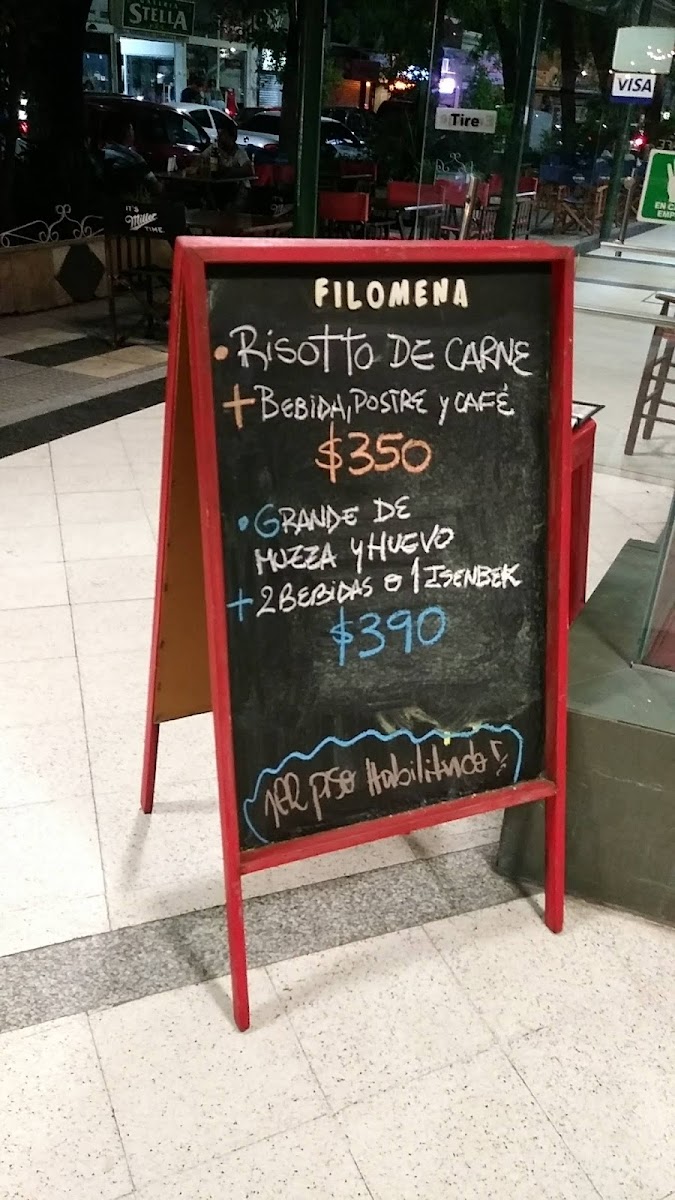 STELLA
VISA
Tire
EN C
EMP
IT'S
Miller
TIME
FILOMENA
• RISOTTO DE CARNE
+ BEBIDA, POSTRE Y CAFÉ
$350
• GRANDE DE
MUZZA Y HUEVO
+ 2 BEBIDAS o 1 ISENBEK
$390
1ER piso Habilitado!